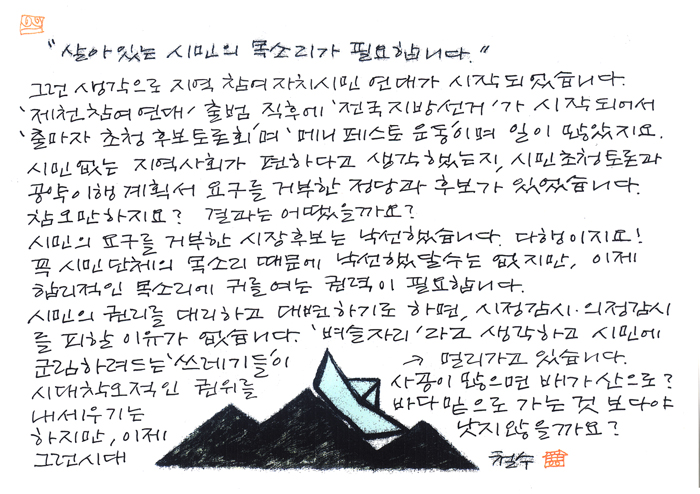 "살아있는 시민의 목소리가 필요합니다."
그런 생각으로 지역 참여자치시민 연대가 시작되었습니다.
'제천참여연대' 출범 직후에 '전국지방선거'가 시작되어서
'출마자 초청 후보토론회'며 '메니페스토 운동'이며 일이 많았지요.
시민없는 지역사회가 편하다고 생각했는지, 시민초청토론과
공약이행계획서 요구를 거부한 정당과 후보가 있었습니다.
참 오만하지요? 결과는 어땠을까요?
시민의 요구를 거부한 시장후보는 낙선했습니다. 다행이지요!
꼭 시민단체의 목소리 때문에 낙선했달수는 없지만, 이제
합리적인 목소리에 귀를 여는 권력이 필요합니다.
시민의 권리를 대리하고 대변하기로 하면, 시정감시·의정감시
를 피할 이유가 없습니다. '벼슬자리'라고 생각하고 시민에
군림하려드는 '쓰레기들'이
시대착오적인 권위를
내세우기는
하지만, 이제
그런시대
→ 멀리가고 있습니다.
사공이 많으면 배가 산으로?
바다 밑으로 가는 것 보다야
낫지않을까요?
철수